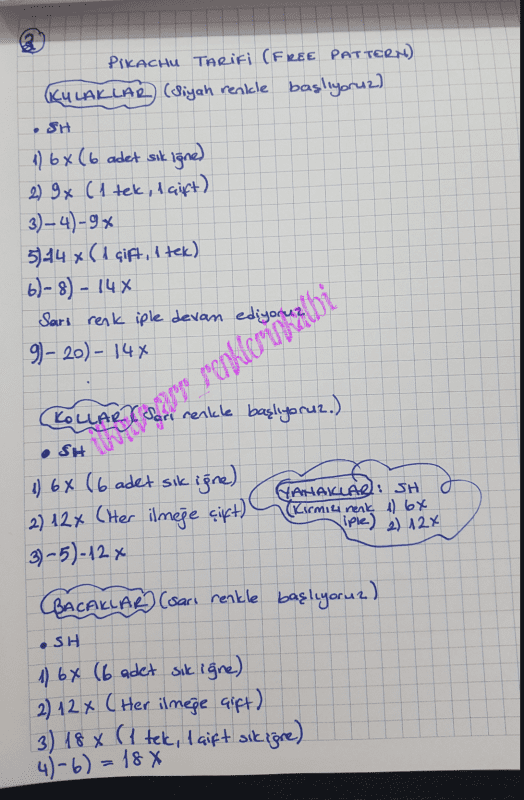 2
PİKACHU TARİFİ (FREE PATTERN)
KULAKLAR (Siyah renkle başlıyoruz)
• SH
1) 6x (6 adet sık iğne)
2) 9x (1 tek, 1 çift)
3)-4)-9x
5)-14x (1 çift, 1 tek)
6)-8)-14x
Sarı renk iple devam ediyoruz
9)-20)-14x
KOLLAR (Sarı renkle başlıyoruz.)
• SH
1) 6x (6 adet sık iğne)
2) 12x (Her ilmeğe çift)
3)-5)-12x
YANAKLAR: SH
(Kırmızı renk iple)
1) 6x
2) 12x
BACAKLAR (Sarı renkle başlıyoruz)
• SH
1) 6x (6 adet sık iğne)
2) 12x (Her ilmeğe çift)
3) 18x (1 tek, 1 çift sık iğne)
4)-6) = 18x